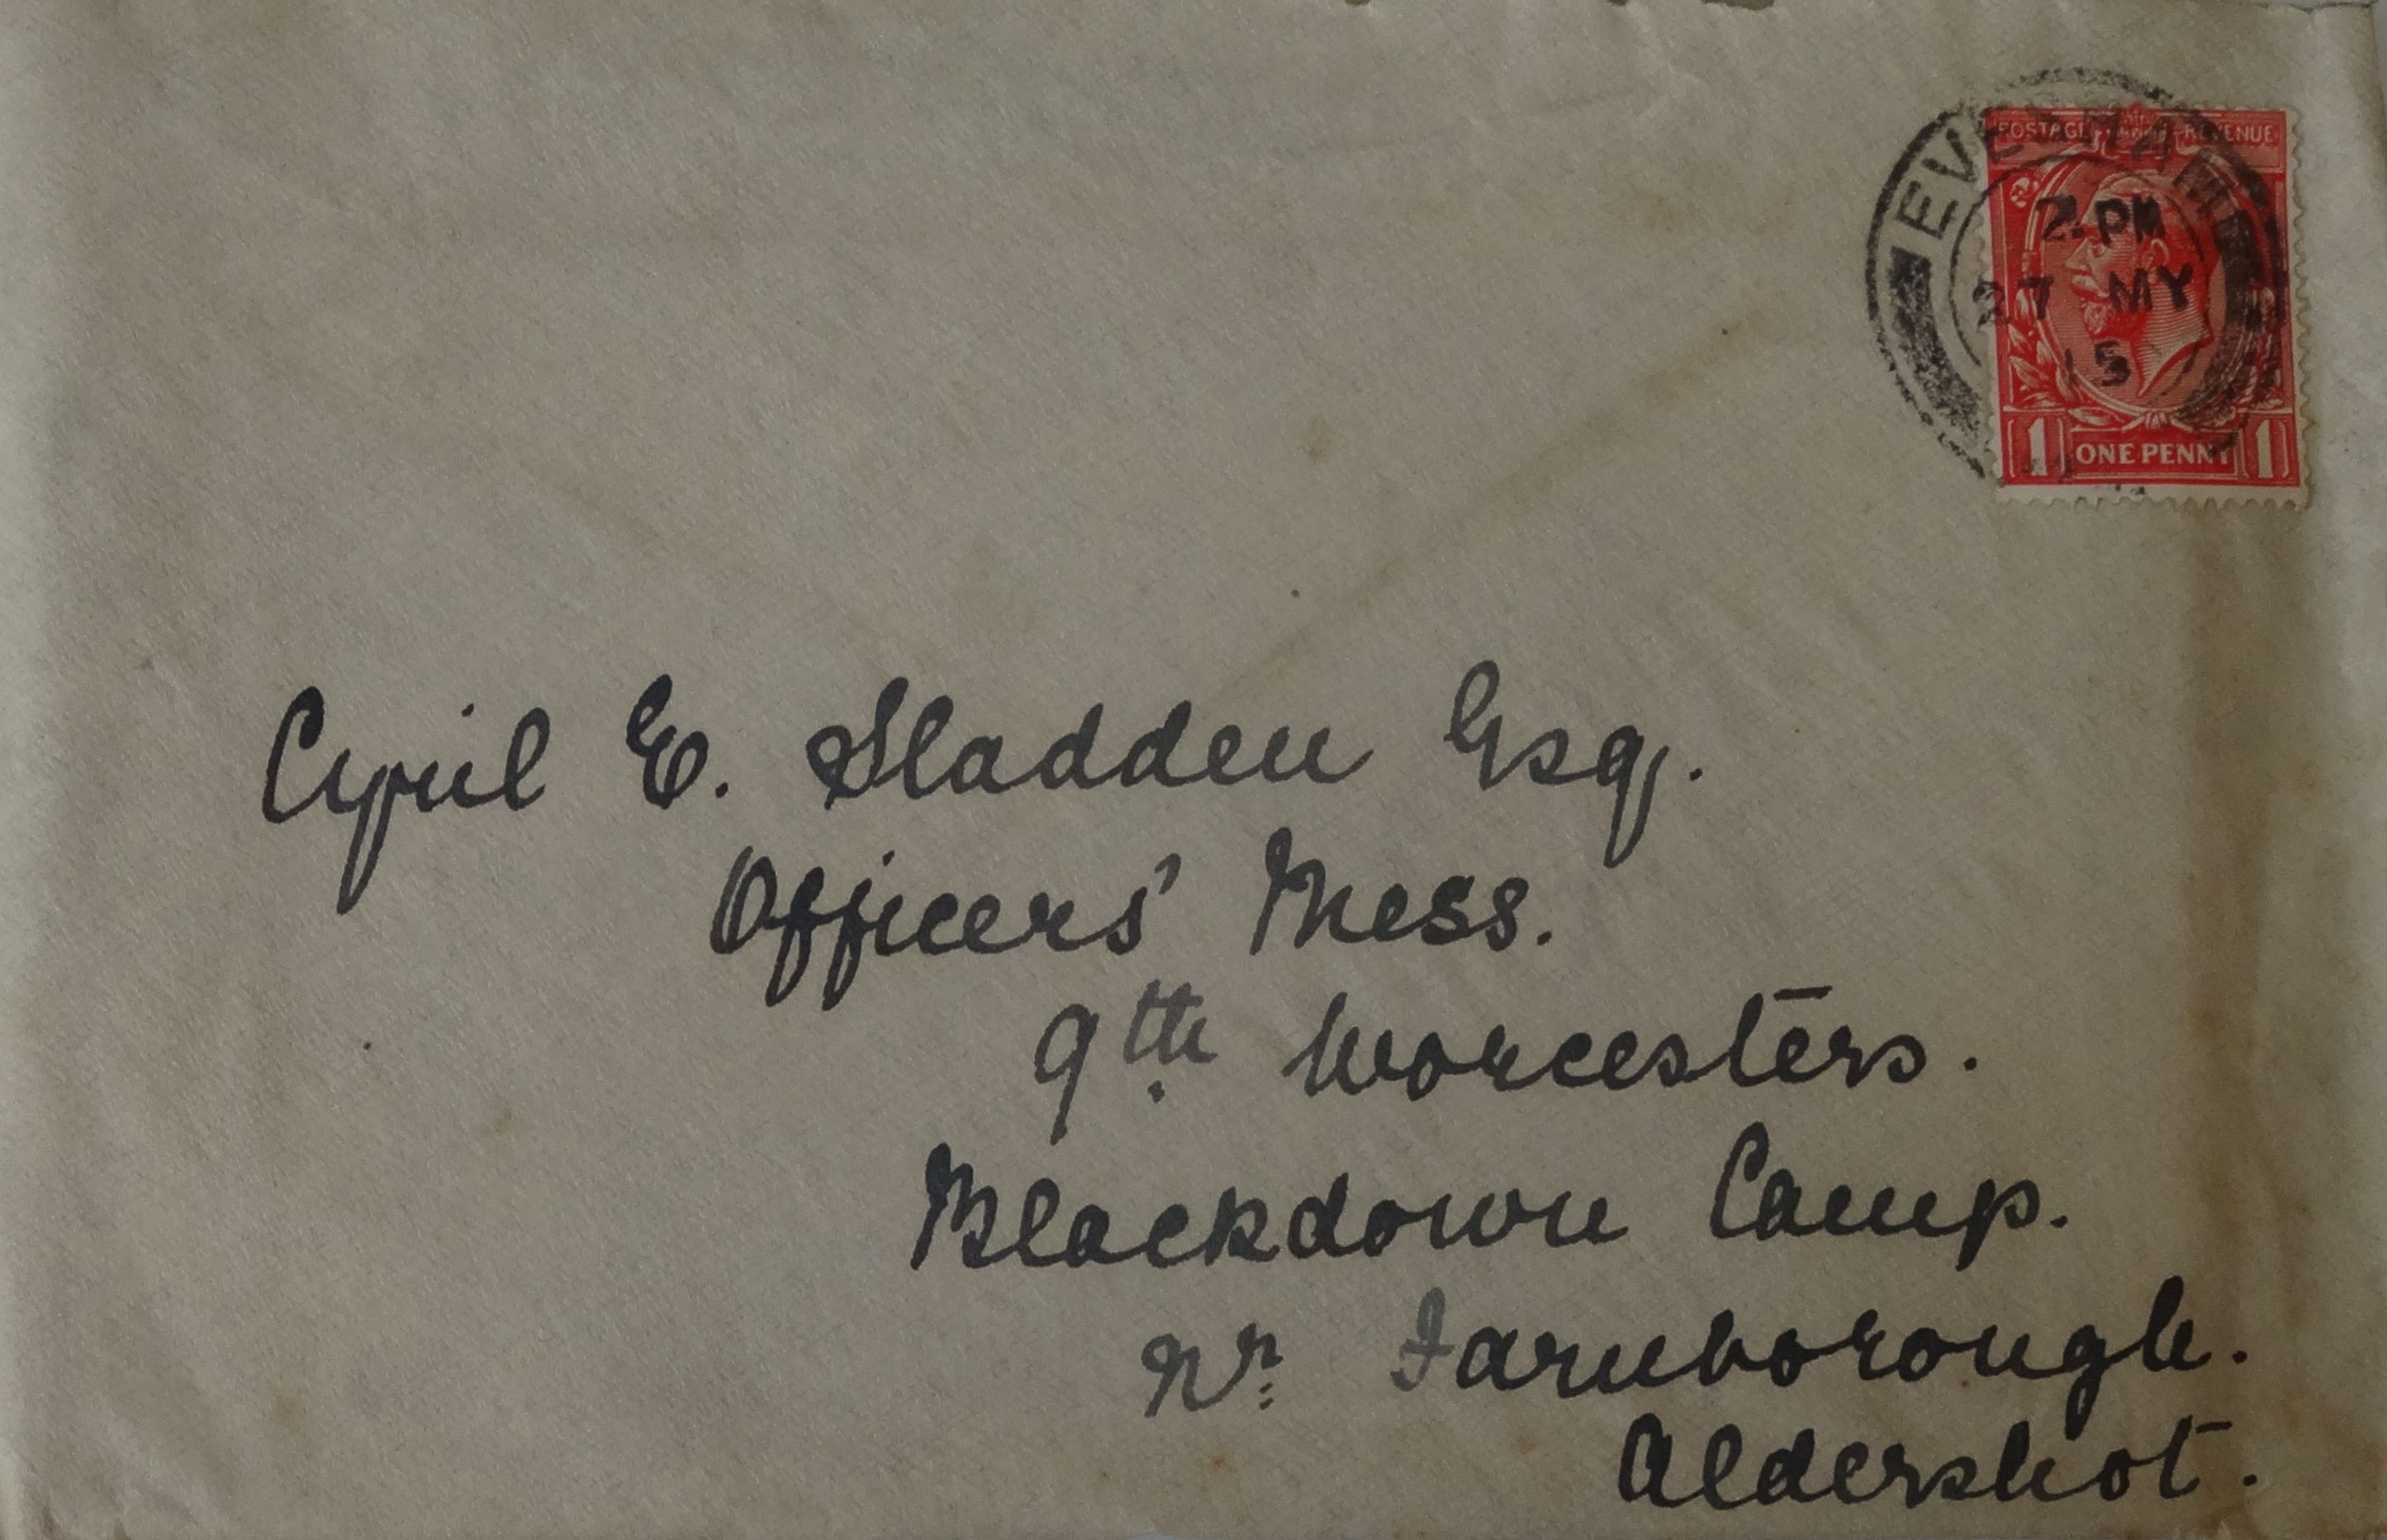 POSTAGE REVENUE
EVESHAM
2. PM
27 MY
15
1 ONE PENNY 1
Cyril E. Sladden Esq.
Officers' Mess.
9th Worcesters.
Blackdown Camp.
Nr Farnborough.
Aldershot.